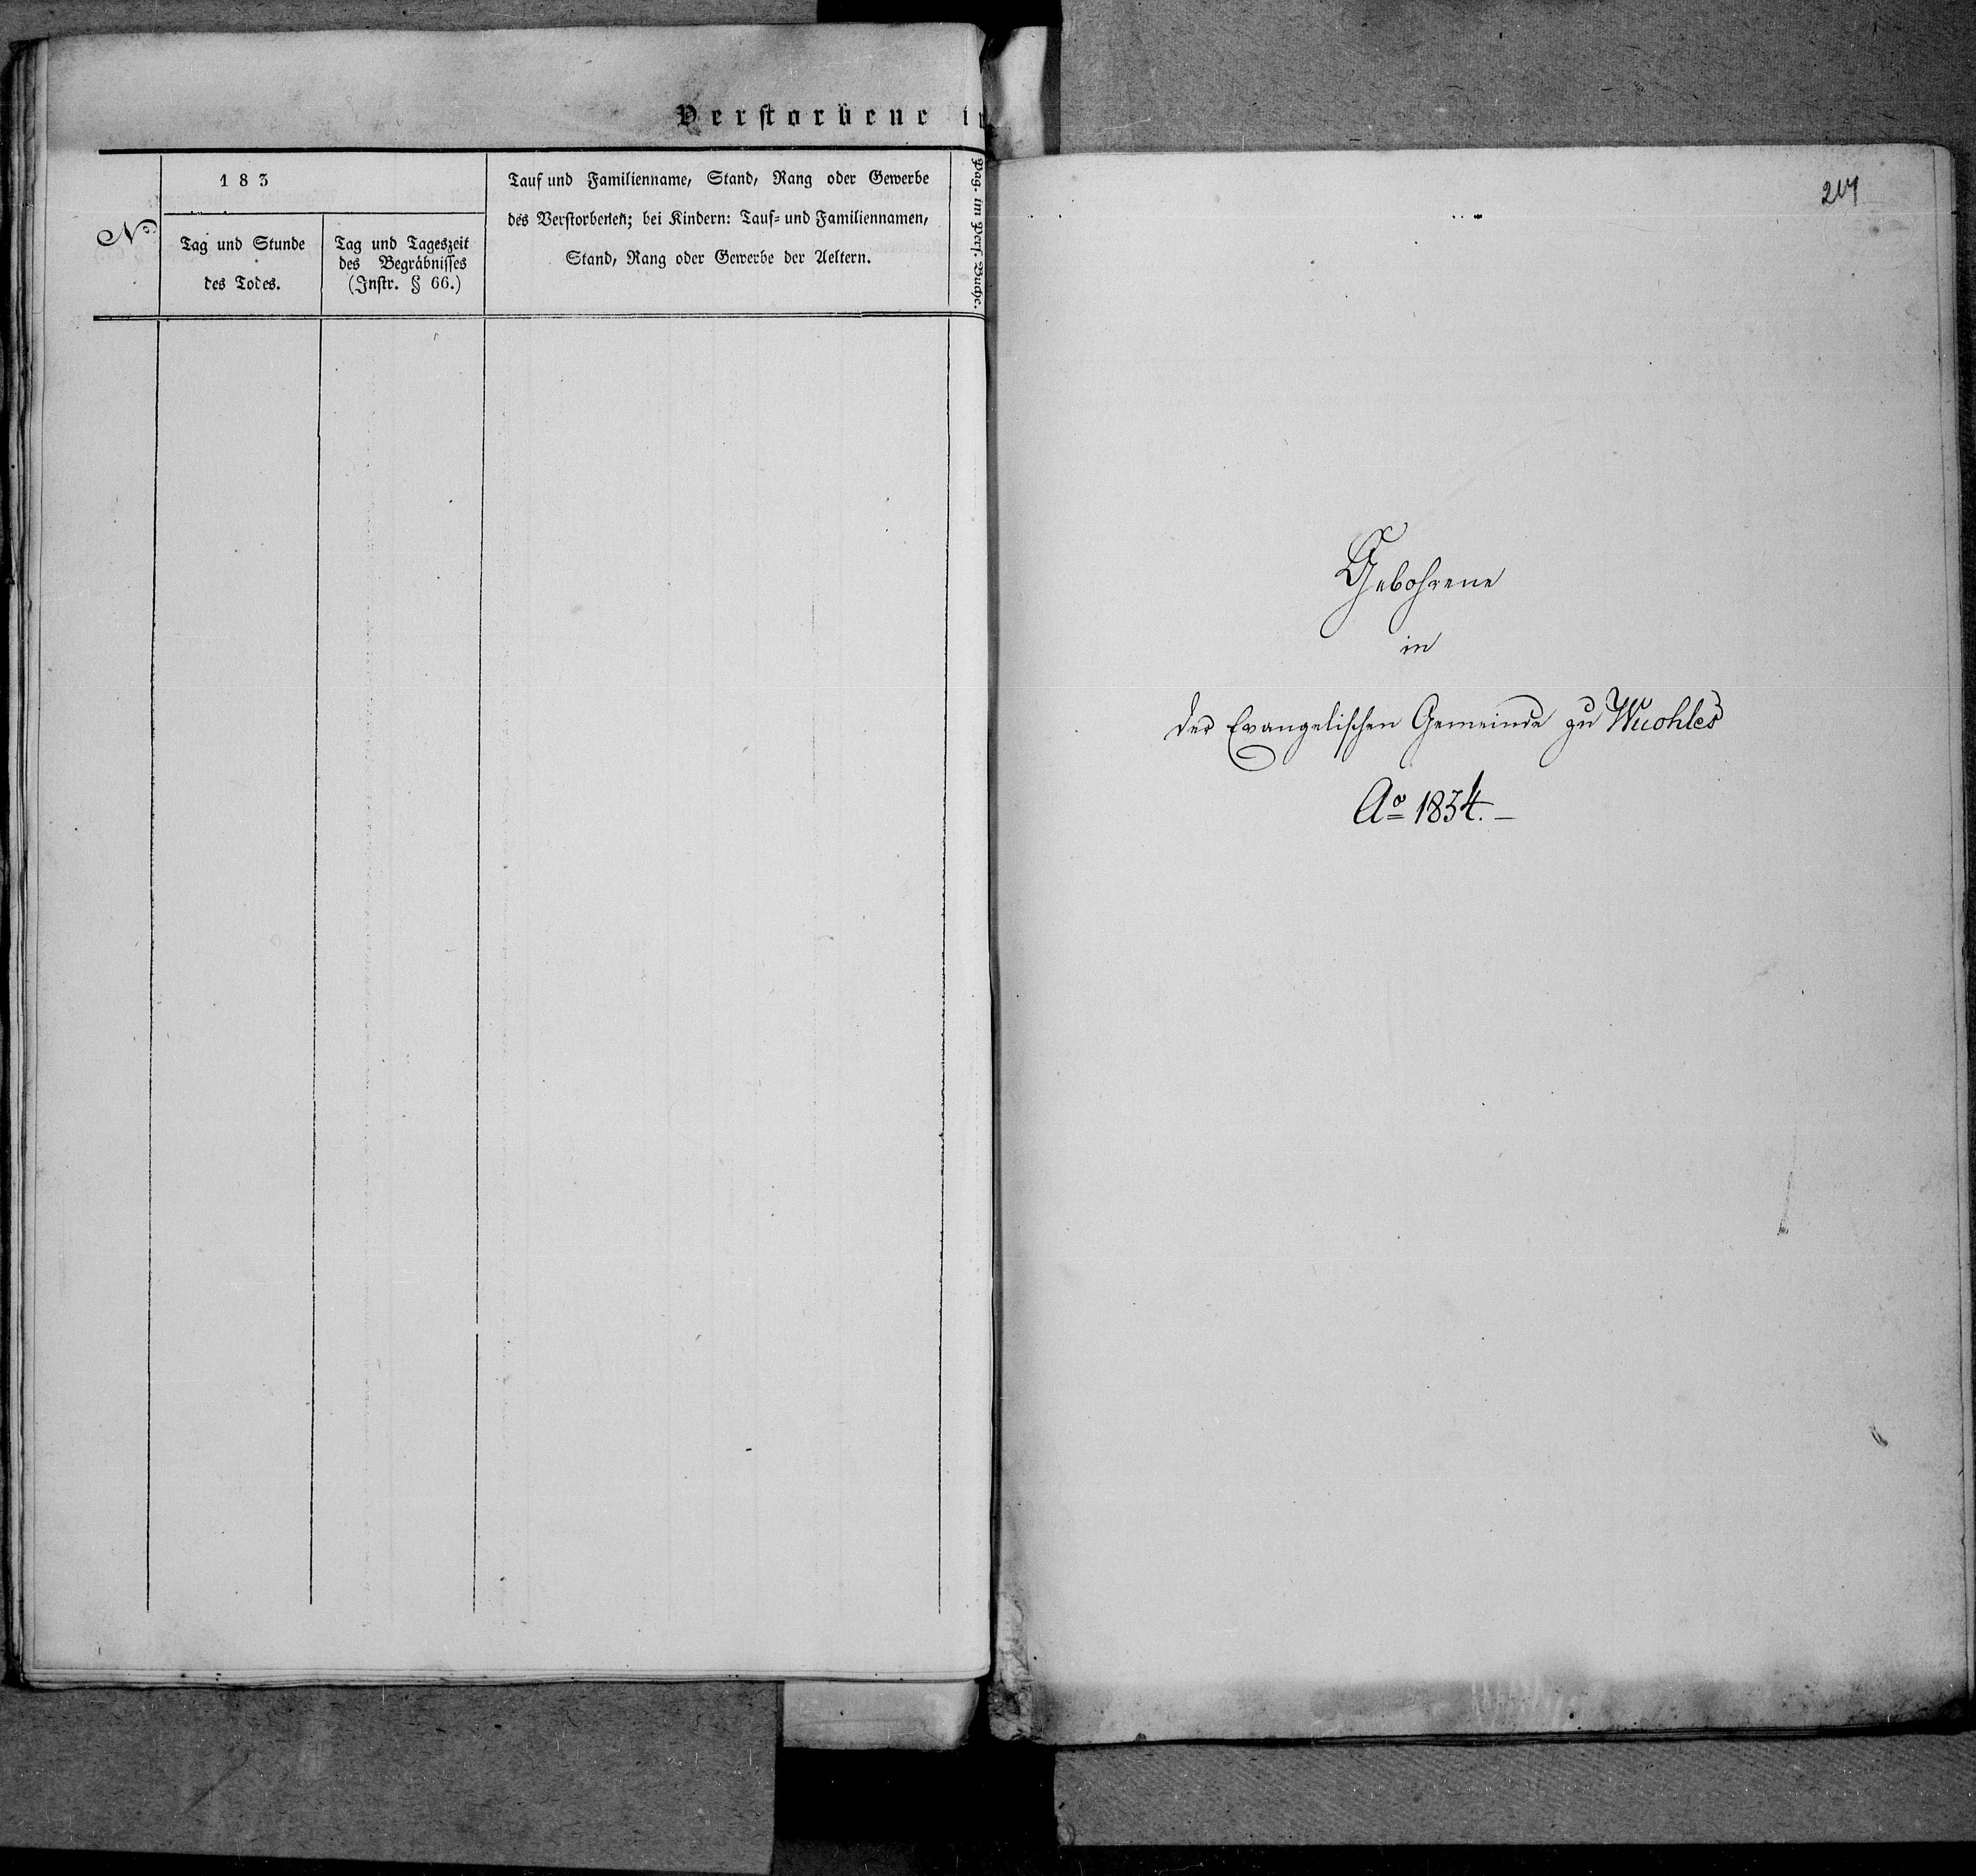 Verstorbene in
No.
183
Tag und Stunde
des Todes.
Tag und Tageszeit
des Begräbnisses
(Instr. § 66.)
Tauf und Familienname, Stand, Rang oder Gewerbe
des Verstorbenen; bei Kindern: Tauf- und Familiennamen,
Stand, Rang oder Gewerbe der Aeltern.
Pag. im Pers. Buche.
Gebohrene
in
der Evangelischen Gemeinde zu
Ao 1834.